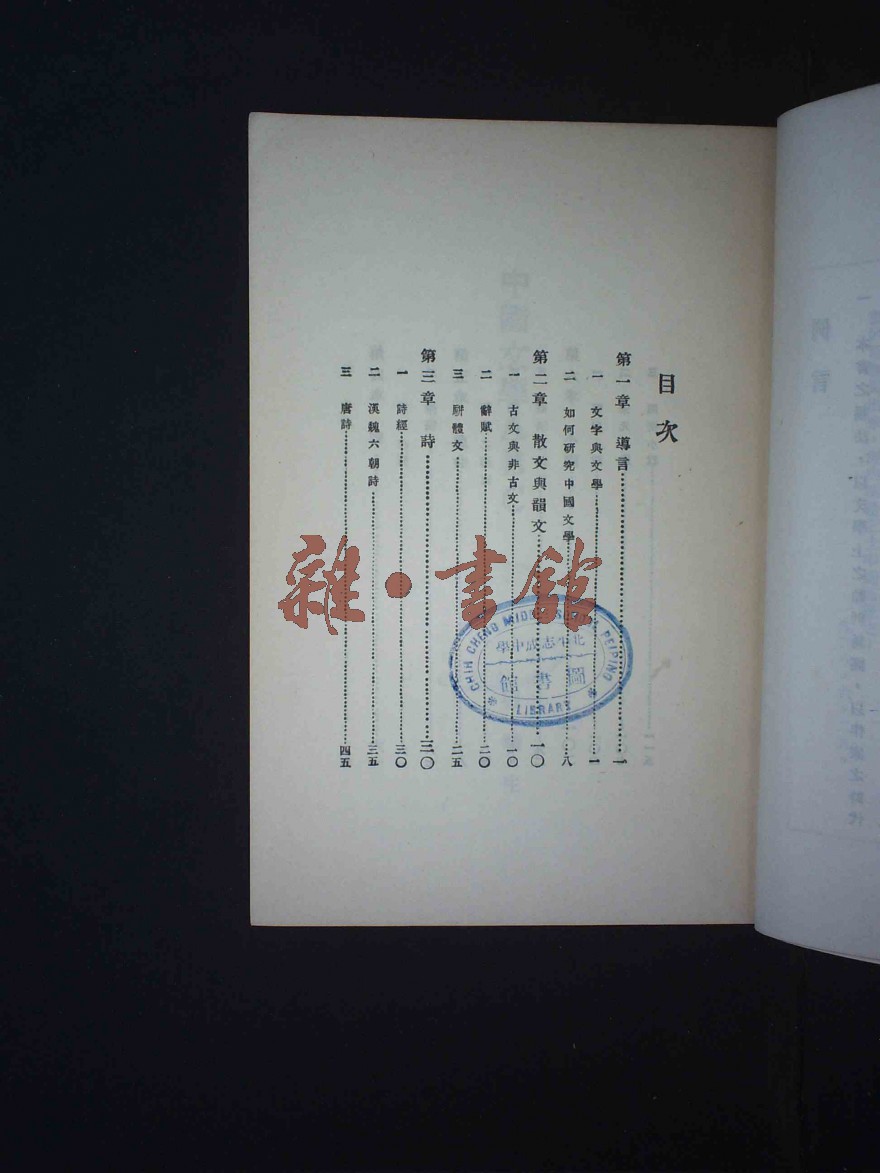 目次
第一章 導言…………一
一 文字與文學…………一
二 如何研究中國文學…………八
第二章 散文與韻文…………一〇
一 古文與非古文…………一〇
二 辭賦…………二〇
三 駢體文…………二五
第三章 詩…………三〇
一 詩經…………三〇
二 漢魏六朝詩…………三五
三 唐詩…………四五
雜·書館
CHIH CHENG MIDDLE SCHOOL PEIPING
學中成志平北
館書圖
LIBRARY